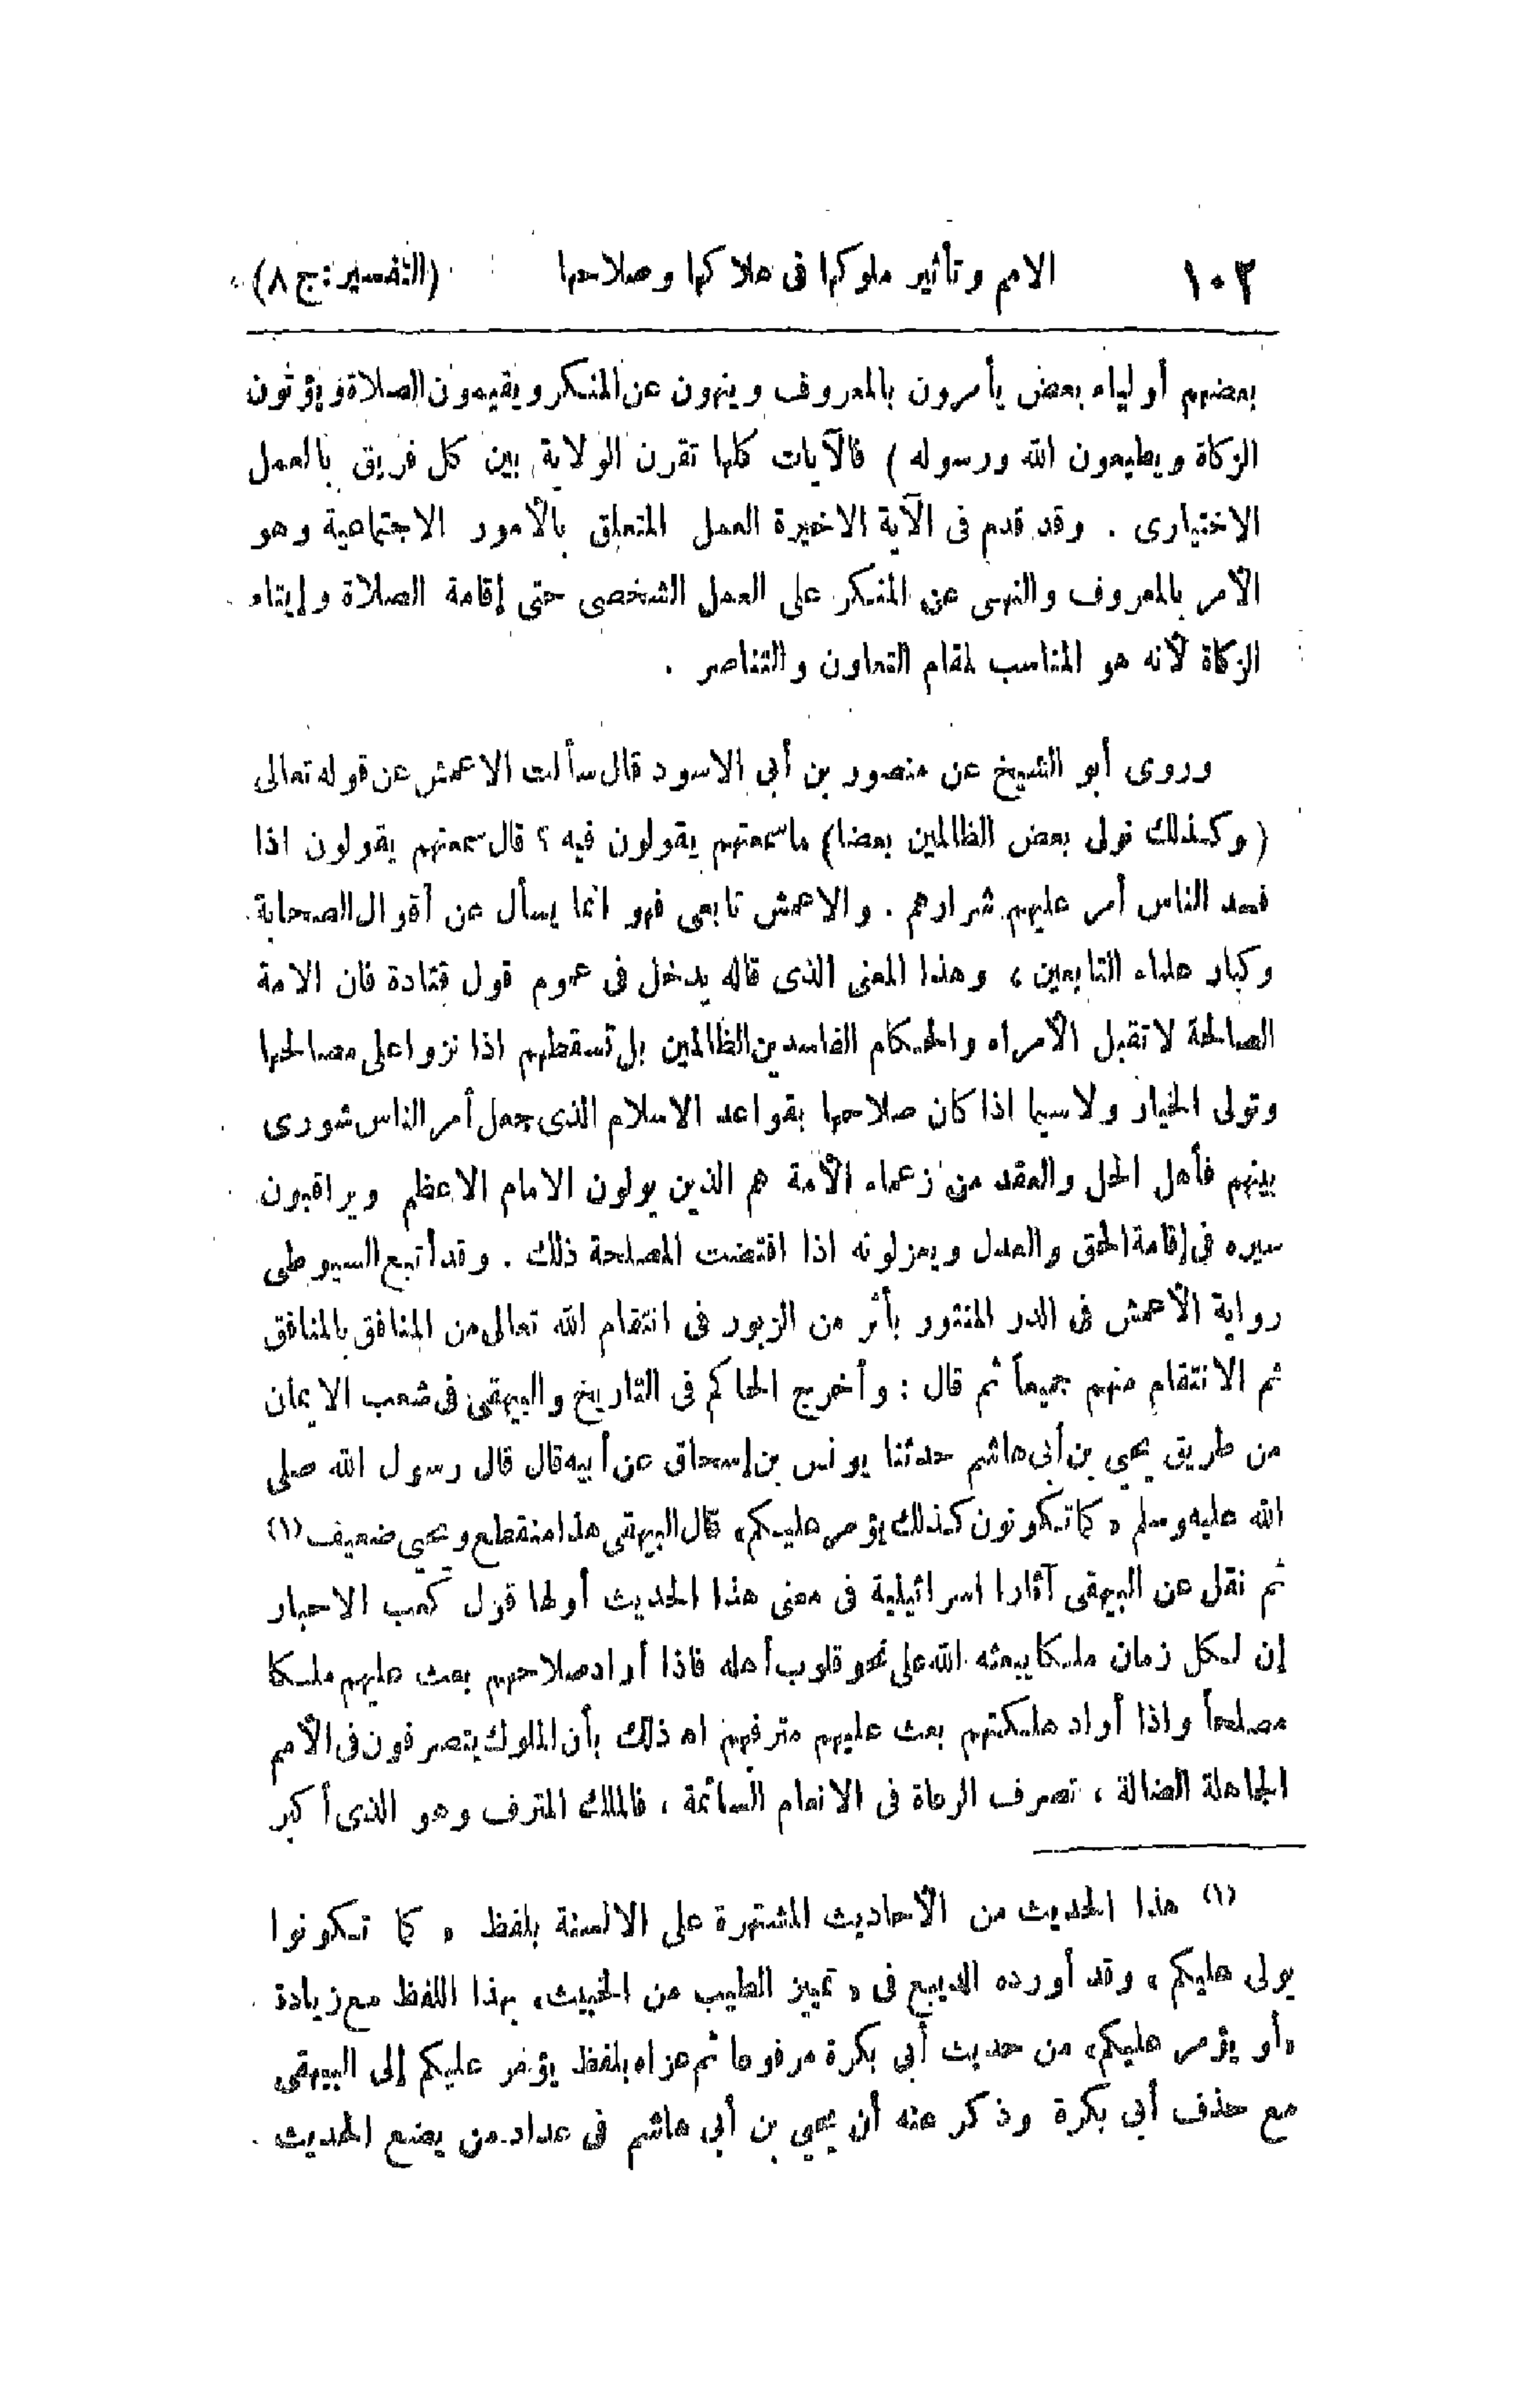 ١٠٢ الامم وتأثير ملوكها فى هلاكها وصلاحها (التفسير: ج ٨)
بعضهم أولياء بعض يأمرون بالمعروف وينهون عن المنكر ويقيمون الصلاة ويؤتون
الزكاة ويطيعون الله ورسوله ) فالآيات كلها تقرن الولاية بين كل فريق بالعمل
الاختيارى . وقد قدم فى الآية الاخيرة العمل المتعلق بالأمور الاجتماعية وهو
الأمر بالمعروف والنهى عن المنكر على العمل الشخصى حتى إقامة الصلاة وإيتاء
الزكاة لأنه هو المناسب لمقام التعاون والتناصر .
وروى أبو الشيخ عن منصور بن أبى الاسود قال سألت الاعمش عن قوله تعالى
( وكذلك نولى بعض الظالمين بعضا) ما سمعتهم يقولون فيه ؟ قال سمعتهم يقولون اذا
فسد الناس أمر عليهم شرارهم . والاعمش تابعى فهو انما يسأل عن أقوال الصحابة
وكبار علماء التابعين ، وهذا المعنى الذى قاله يدخل فى عموم قول قتادة فان الامة
الصالحة لا تقبل الأمراء والحكام الفاسدين الظالمين بل تسقطهم اذا نزوا على مصالحها
وتولى الخيار ولا سيما اذا كان صلاحها بقواعد الاسلام الذى جعل أمر الناس شورى
بينهم فأهل الحل والعقد من زعماء الأمة هم الذين يولون الامام الاعظم ويراقبون
سيره فى إقامة الحق والعدل ويعزلونه اذا اقتضت المصلحة ذلك . وقد أتبع السيوطى
رواية الأعمش فى الدر المنثور بأثر من الزبور فى انتقام الله تعالى من المنافق بالمنافق
ثم الانتقام منهم جميعاً ثم قال : وأخرج الحاكم فى التاريخ والبيهقى فى شعب الايمان
من طريق يحيى بن أبى هاشم حدثنا يونس بن إسحاق عن أبيه قال قال رسول الله صلى
الله عليه وسلم « كما تكونون كذلك يؤمر عليكم» قال البيهقى هذا منقطع ويحيى ضعيف (١)
ثم نقل عن البيهقى آثارا اسرائيلية فى معنى هذا الحديث أولها قول كعب الاحبار
إن لكل زمان ملكا يبعثه الله على نحو قلوب أهله فاذا أراد صلاحهم بعث عليهم ملكا
مصلحاً واذا أراد هلكتهم بعث عليهم مترفيهم اه ذلك بأن الملوك يتصرفون فى الأمم
الجاهلة الضالة ، تصرف الرعاة فى الانعام السائمة ، فالملك المترف وهو الذى أكبر
(١) هذا الحديث من الأحاديث المشتهرة على الالسنة بلفظ « كما تكونوا
يولى عليكم » وقد أورده الديبع فى « تمييز الطيب من الخبيث» بهذا اللفظ مع زيادة
«أو يؤمر عليكم» من حديث أبى بكرة مرفوعا ثم عزاه بلفظ يؤمر عليكم إلى البيهقى
مع حذف أبى بكرة وذكر عنه أن يحيى بن أبى هاشم فى عداد من يضع الحديث .